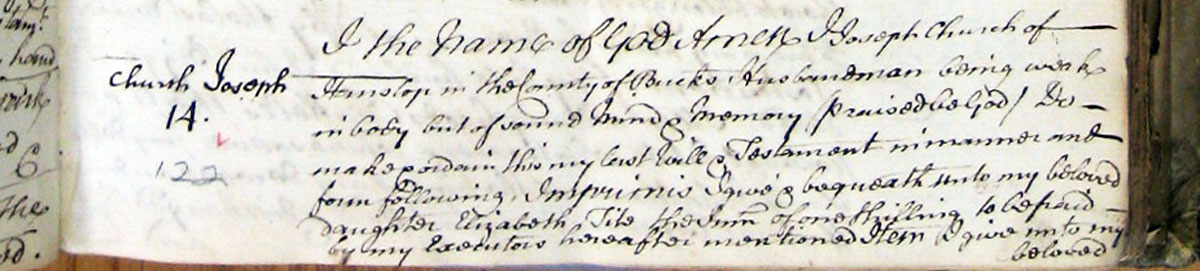 I the Name of God Amen I Joseph Church of
Church Joseph
Hanslop in the County of Bucks Husbandman being weak
14.
in body but of sound Mind & Memory (praised be God) Do
122
make & ordain this my last Will & Testament in manner and
form following, Imprimis I give & bequeath unto my beloved
daughter Elizabeth Tite the Sum of one Shilling to be paid
by my Executors hereafter mentioned Item I give unto my
beloved
hand
6
the